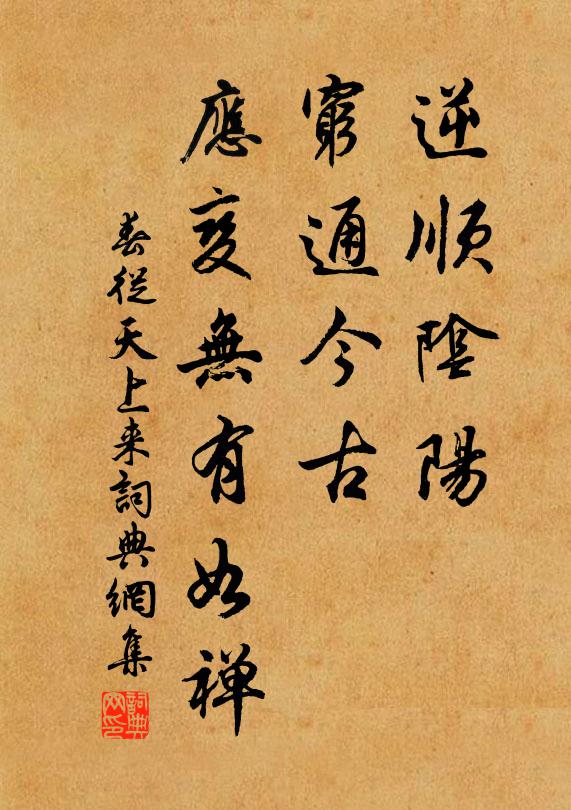 逆順陰陽
窮通今古
應變無有如禪
春從天上来詞典網集
詞典网印